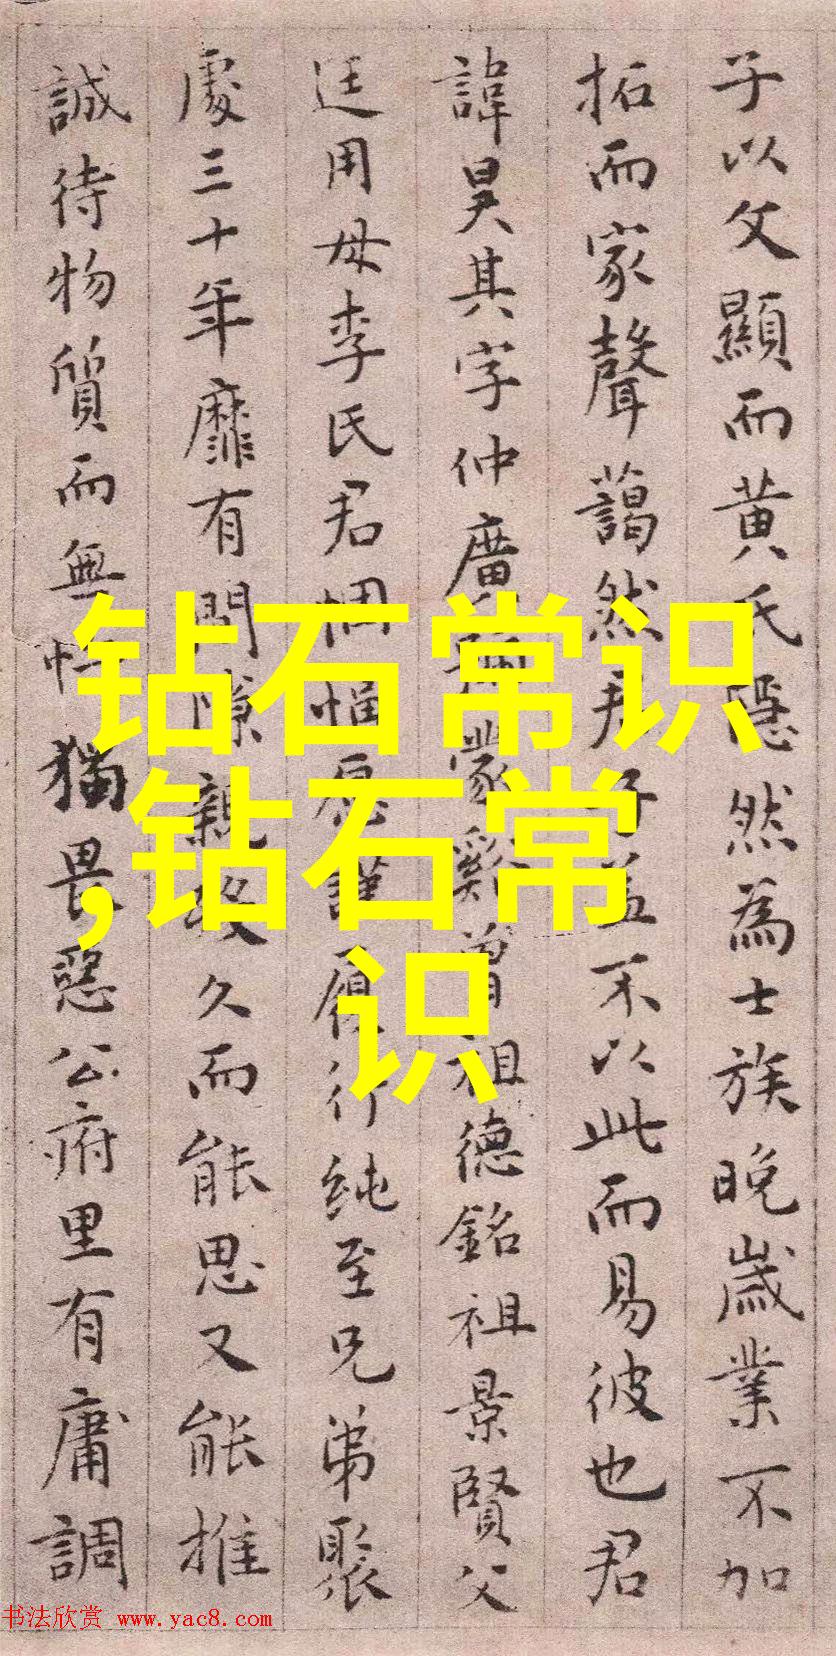 子以文顯而黃氏隱然為士族晚歲業不加
拓而家聲藹然君子蓋不以此而易彼也君
諱昊其字仲廣號蒙谿曾祖德銘祖景賢父
廷用母李氏君悃愊愿謹履行純至兄弟聚
處三十年靡有間隙親故久而能思又能推
誠待物質而無忮獨畏惡公府里有庸調
钻石常识
,钻石常
识
书法欣赏 www.yac8.com